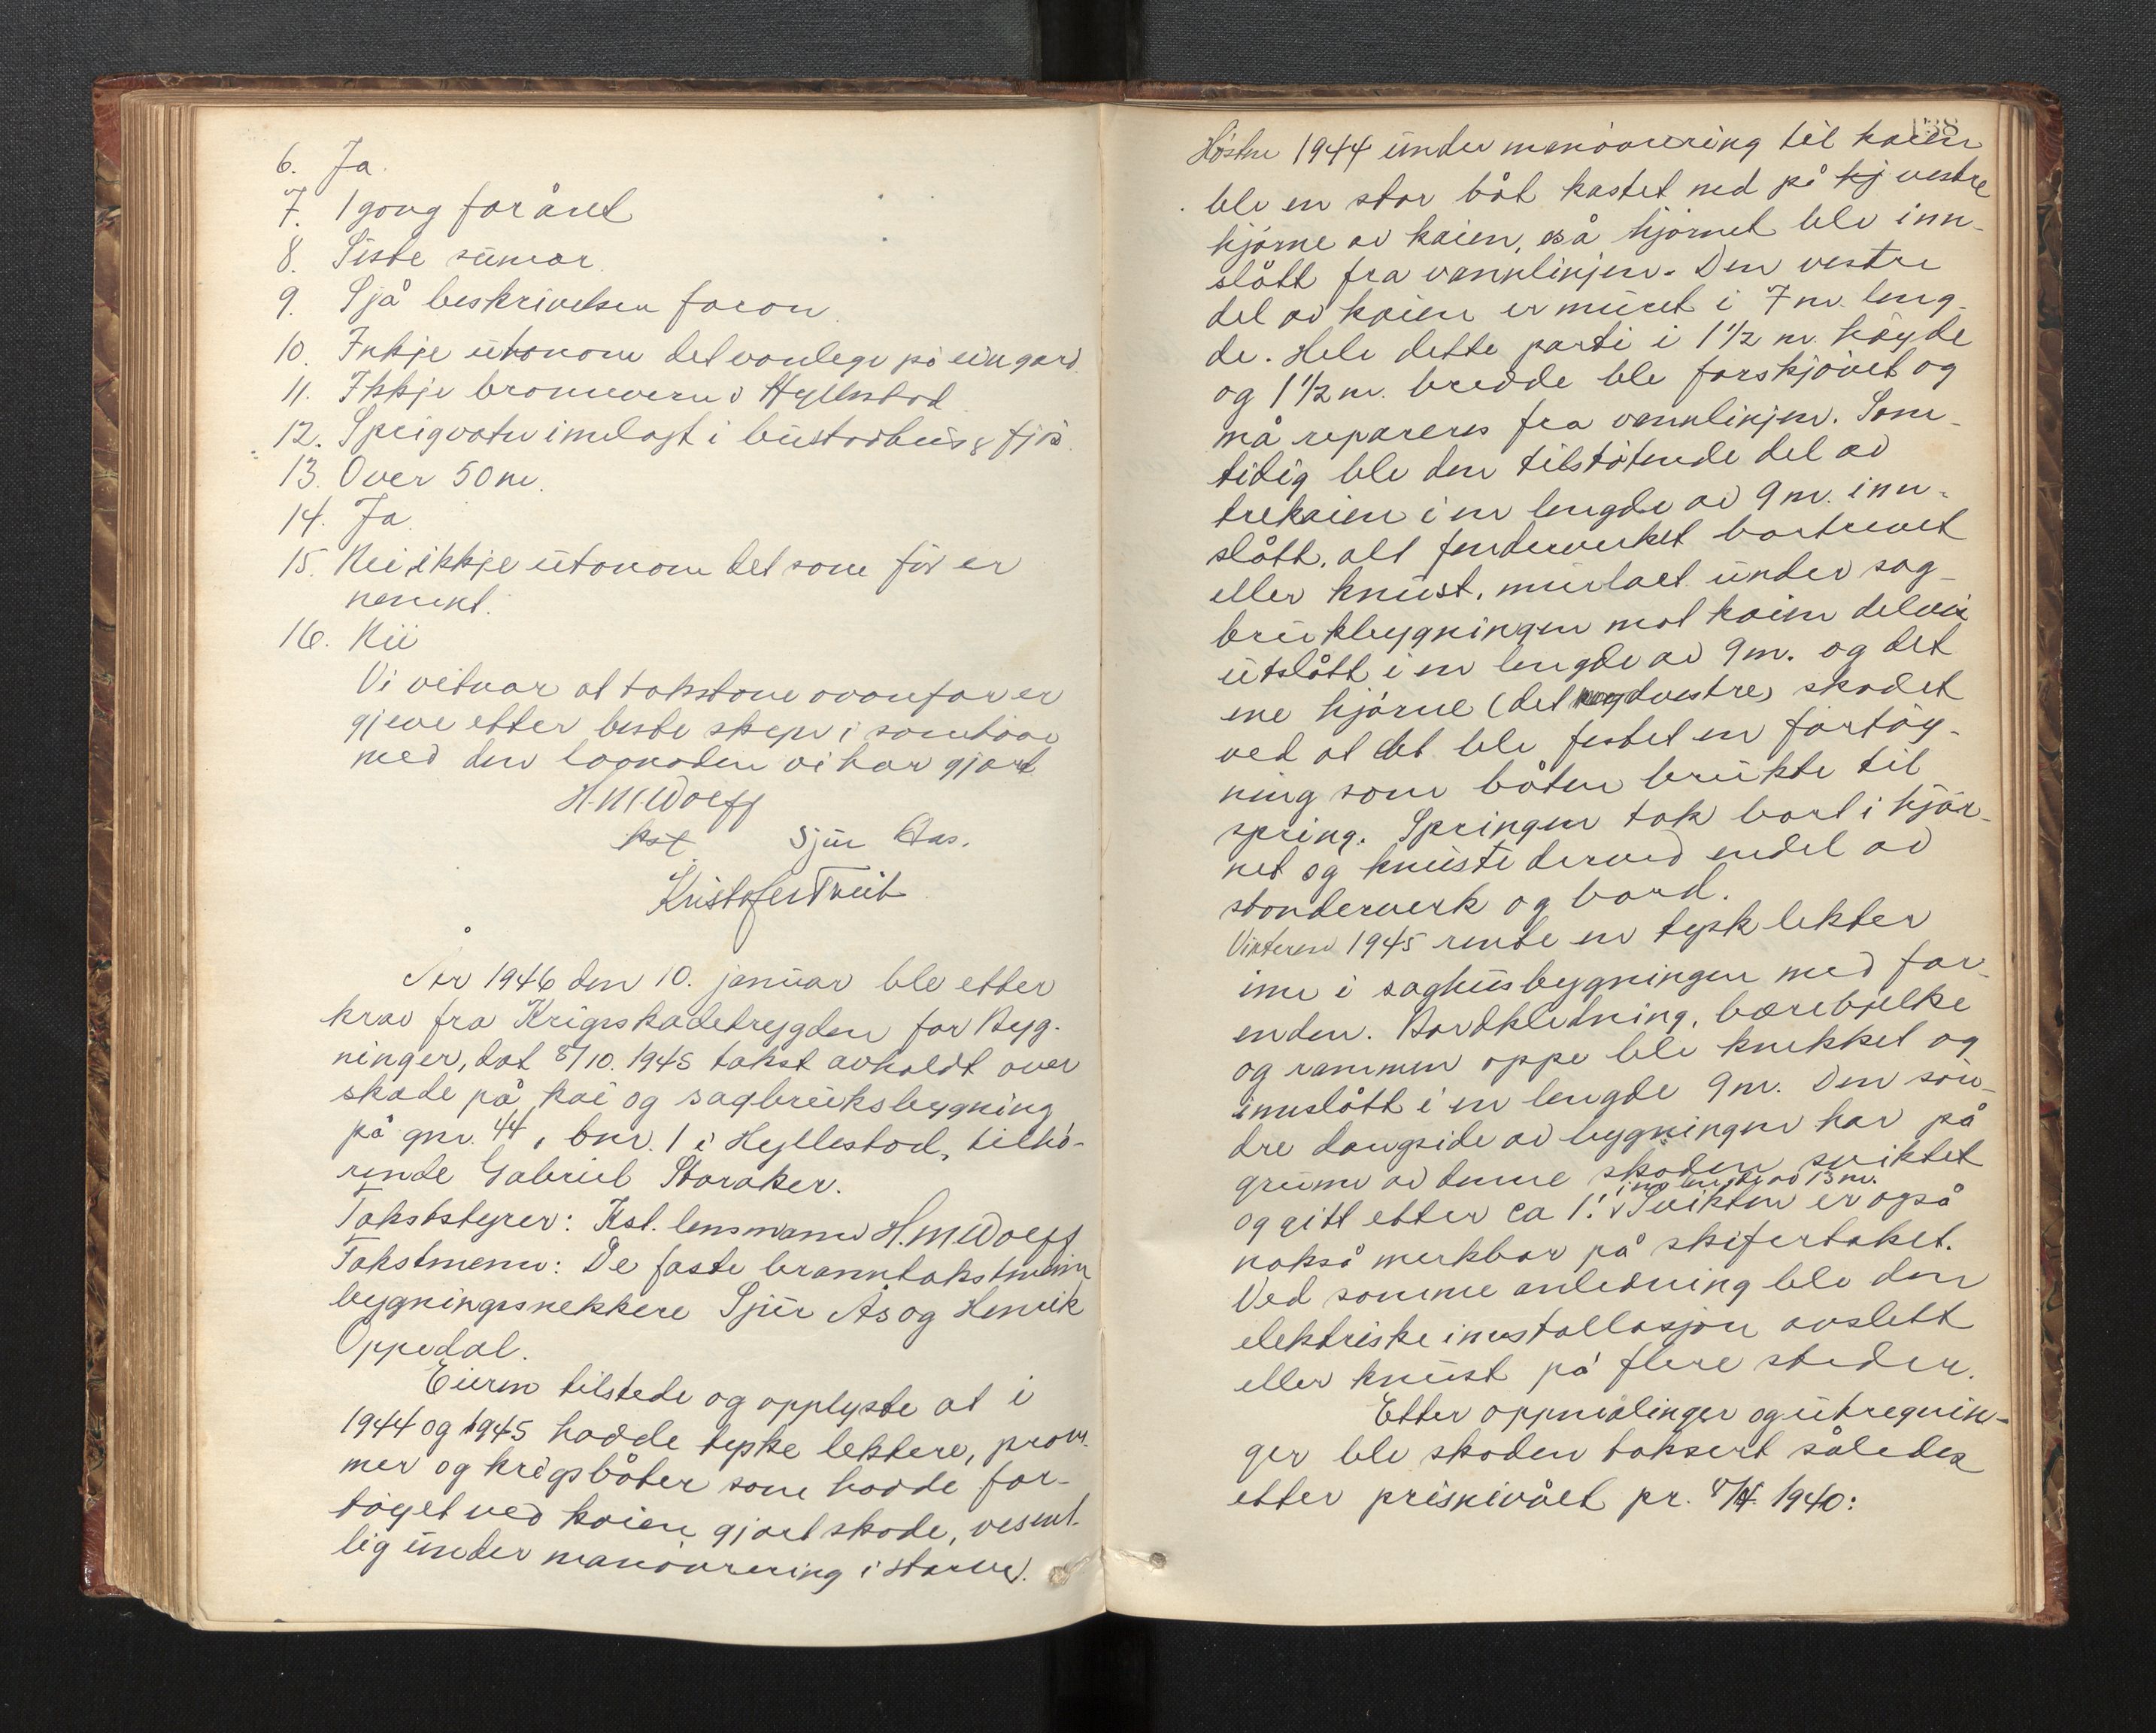 6. Ja.
7. 1 gong for året
8. Siste sumar.
9. Sjå beskrivelsen foran.
10. Inkje utanom det vanlege på ein gard.
11. Ikkje brannvern i Hyllestad
12. Springvatn innlagt i bustadhus & fjøs.
13. Over 50 m.
14. Ja.
15. Nei ikkje utanom det som før er
nemnt.
16. Nei
Vi vitnar at takstane ovanfor er
gjeve etter beste skyn i samhøve
med den lovnaden vi har gjort.
H. M. Wolff
kst. Sjur Aas.
Kristofer Tveit
År 1946 den 10. januar ble etter
krav fra Krigsskadetrygden for Byg-
ninger, dat 8/10. 1945 takst avholdt over
skade på kai og sagbruksbygning
på gnr. 44, bnr. 1 i Hyllestad, tilhø-
rende Gabriel Storaker.
Takststyrer: Kst. lensmann H. M. Wolff
Takstmenn: De faste branntakstmenn
bygningssnekkere Sjur Ås og Henrik
Oppedal.
Eieren tilstede og opplyste at i
1944 og 1945 hadde tyske lektere, pram-
mer og krigsbåter som hadde for-
tøyet ved kaien gjort skade, vesent-
lig under manøvrering i storm.
138
Høsten 1944 under manøvrering til kaien
ble en stor båt kastet ned på hj vestre
hjørne av kaien, så hjørnet ble inn-
slått fra vannlinjen. Den vestre
del av kaien er muret i 7 m. leng-
de. Hele dette parti i 1 1/2 m. høyde
og 1 1/2 m. bredde ble forskjøvet og
må repareres fra vannlinjen. Sam-
tidig ble den tilstøtende del av
trekaien i en lengde av 9 m. inn-
slått, alt fenderverket bortrevet
eller knust, murlaet under sag-
brukbygningen mot kaien delvis
utslått i en lengde av 9 m. og det
ene hjørne (det nordvestre) skadet
ved at det ble festet en fortøy-
ning som båten brukte til
spring. Springen tok bort i hjør-
net og knuste derved endel av
stenderverk og bord.
Vinteren 1945 rente en tysk lekter
inn i saghusbygningen med for-
enden. Bordkledning, bærebjelke
og rammen oppe ble knekket og
innslått i en lengde 9 m. Den søn-
dre langside av bygningen har på
grunn av denne skaden sviktet
i en lengde av 13 m.
og gitt etter ca 1'. v Svikten er også
nokså merkbar på skifertaket.
Ved samme anledning ble den
elektriske innstallasjon avslett
eller knust på flere steder.
Etter oppmålinger og utregnin-
ger ble skaden taksert således
etter prisnivået pr. 8/4. 1940: